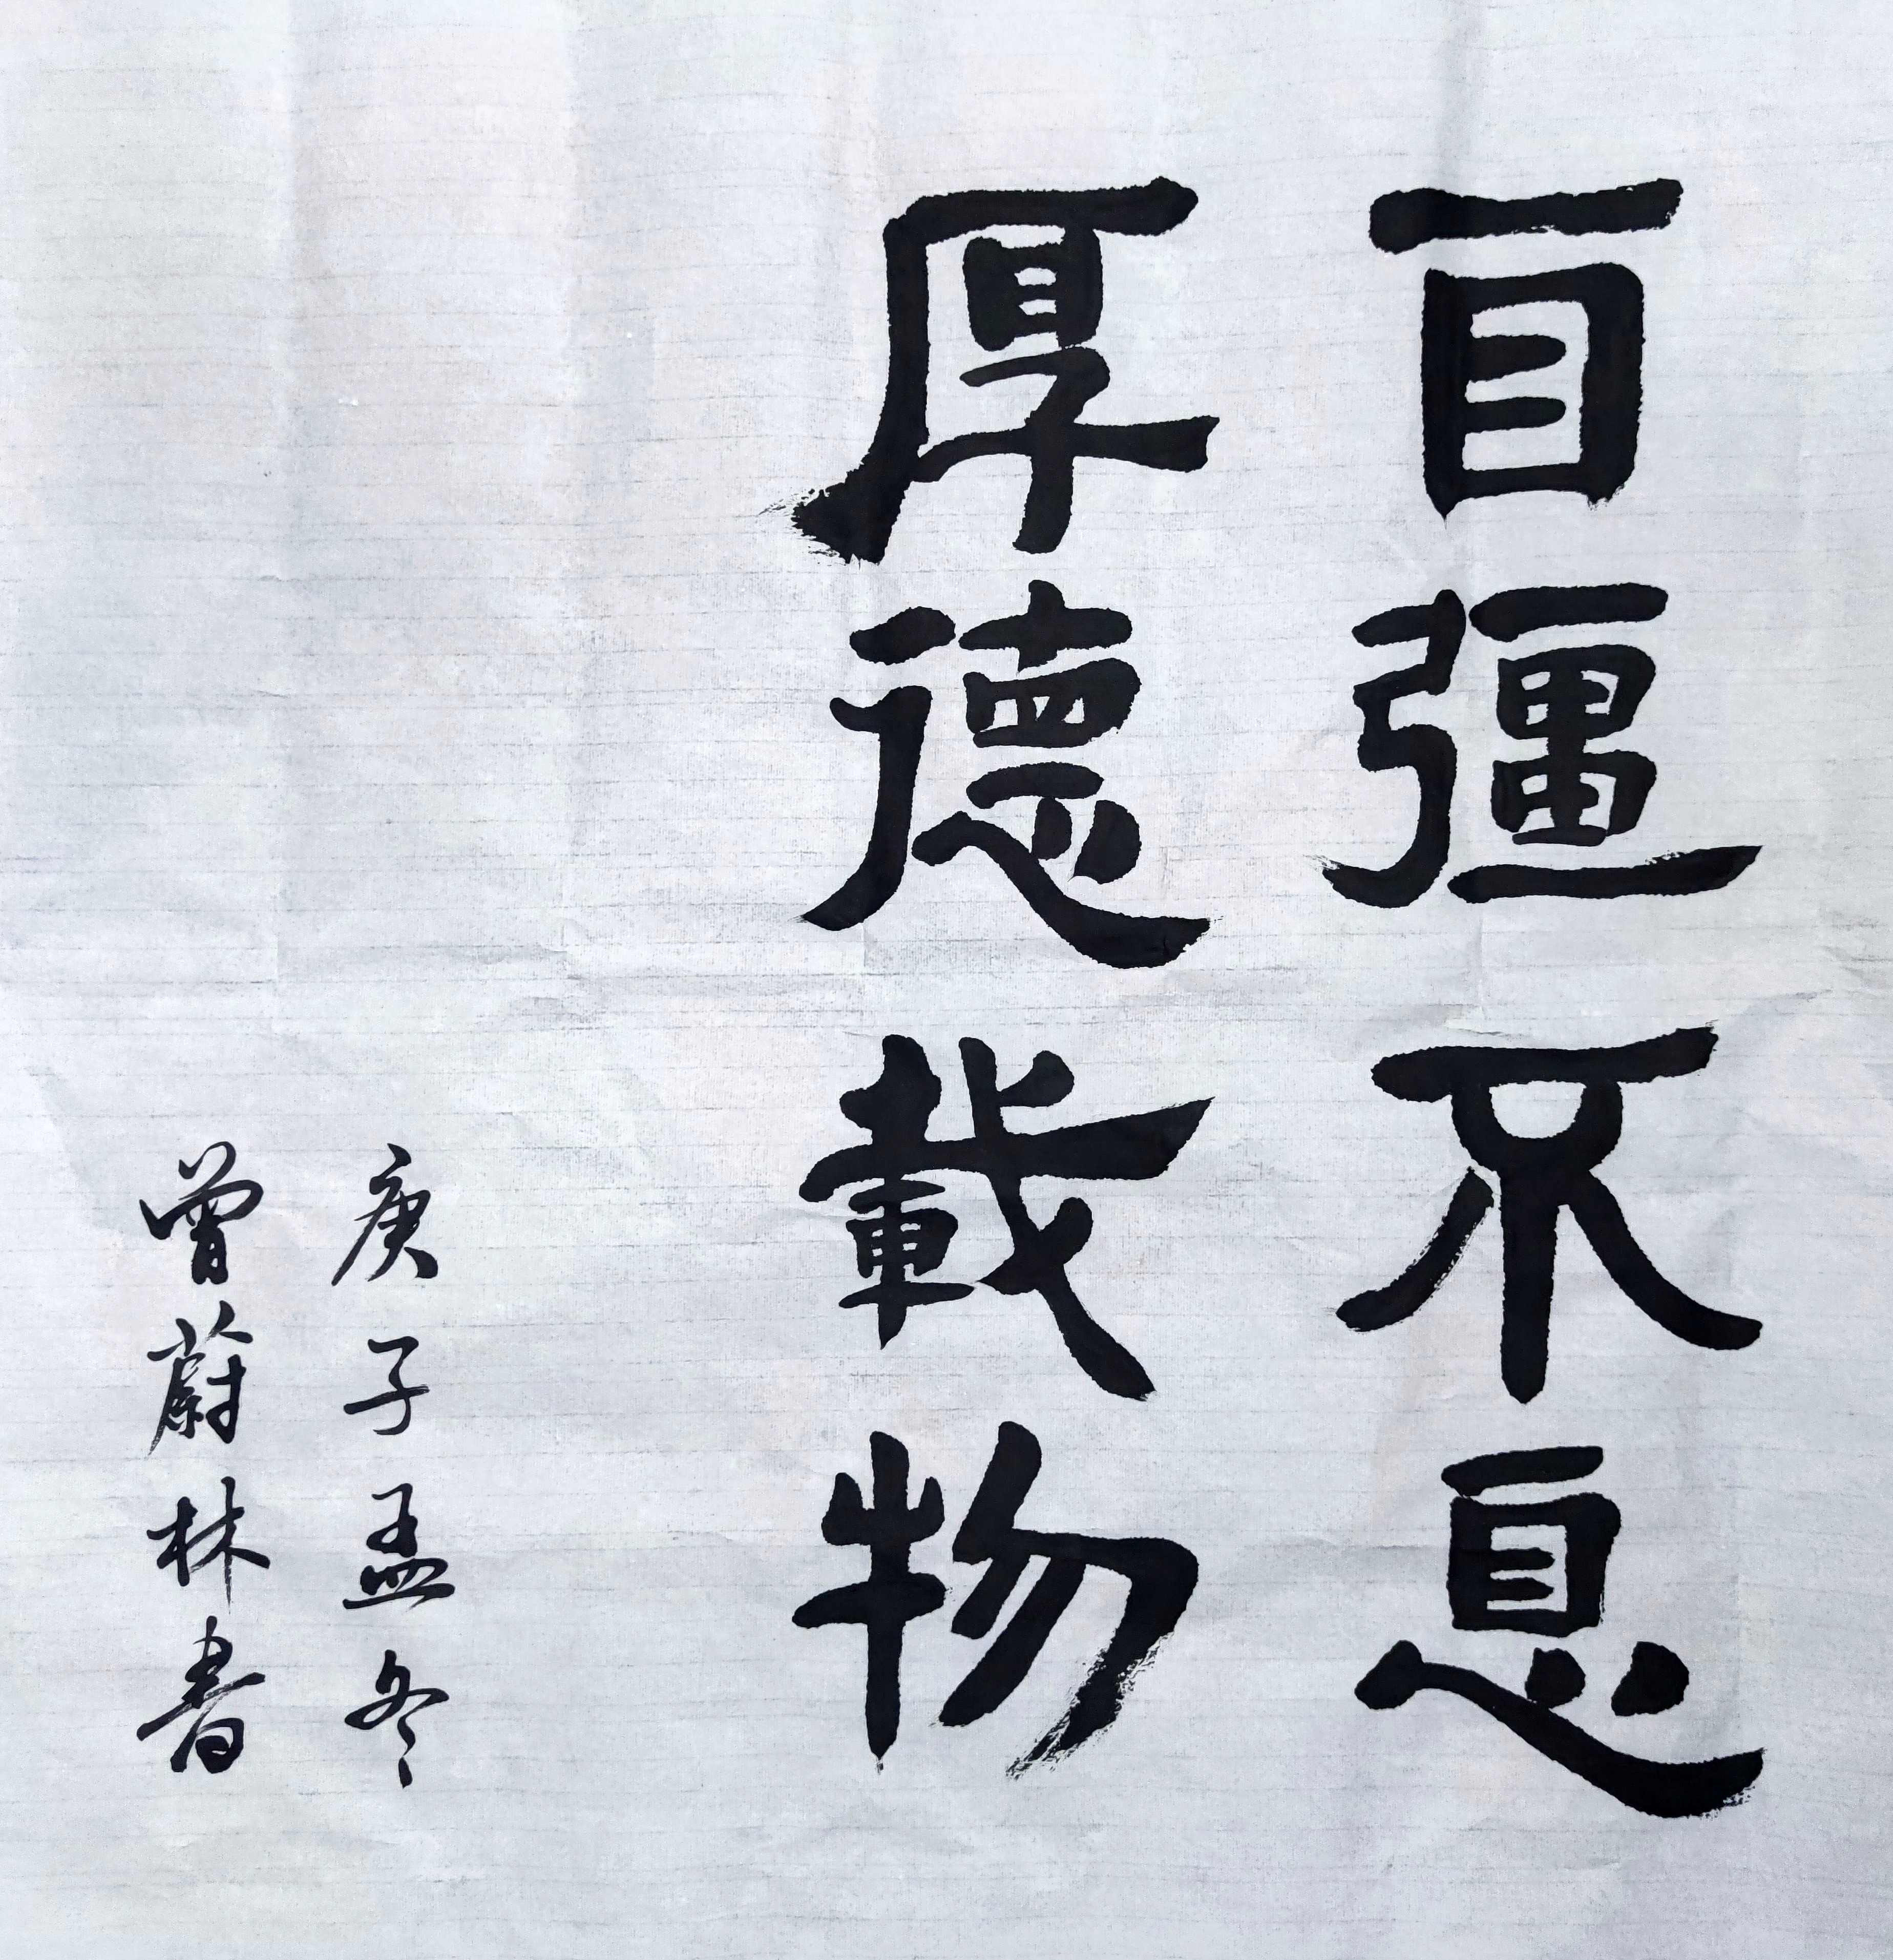 自彊不息
厚德載物
庚子孟冬
曾蔚林書